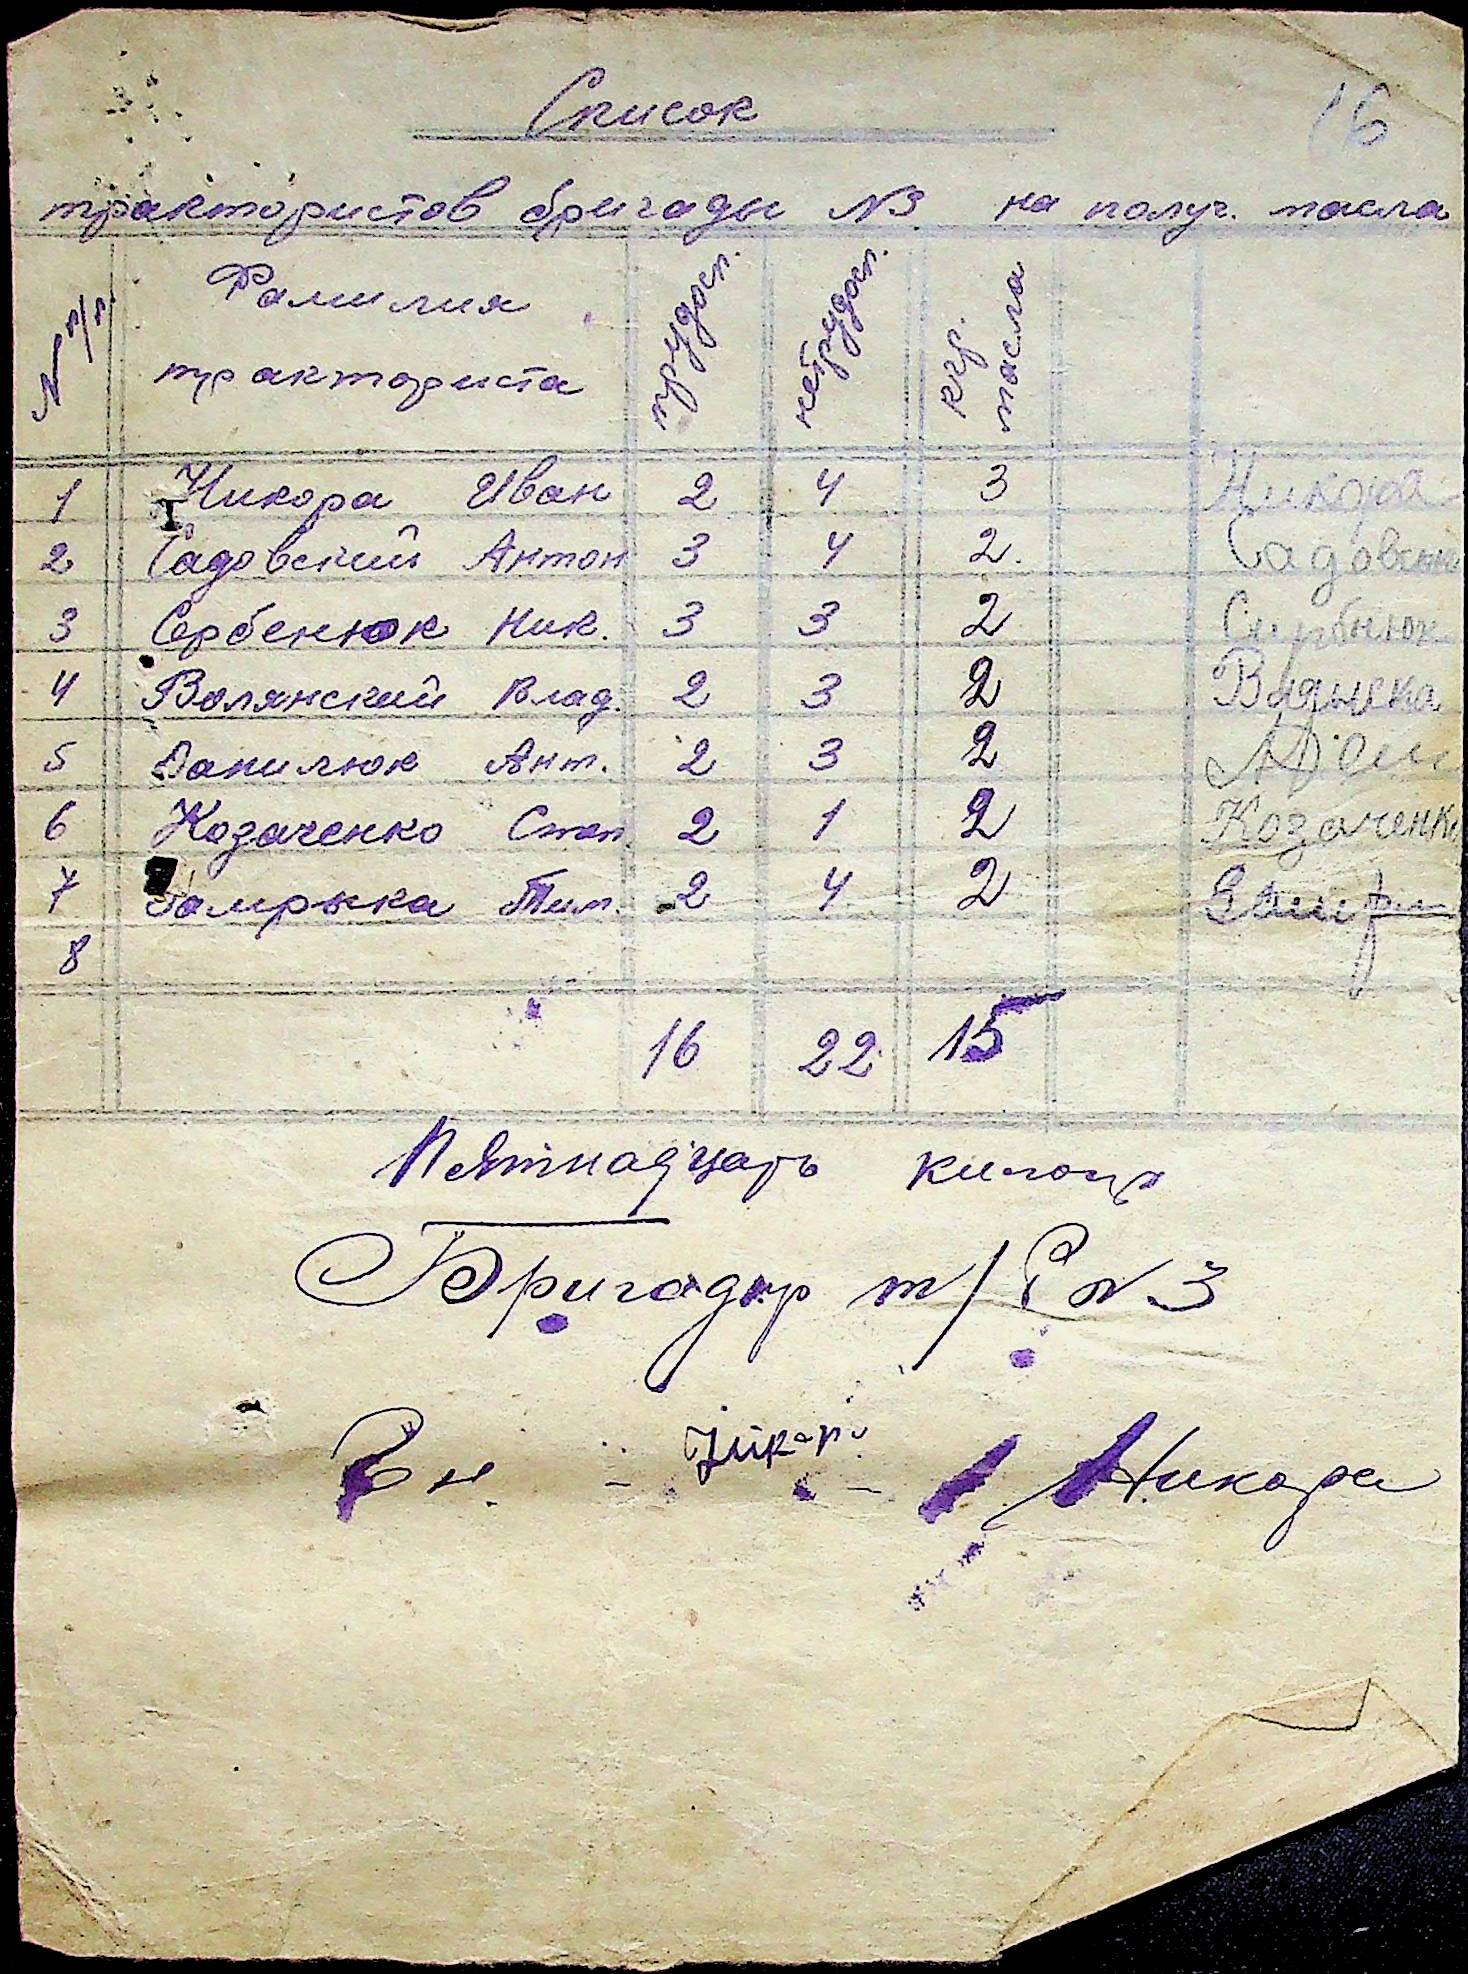 16
Список
трактористов бригады №3 на получ. масла
№ п/п Фамилия тракториста трудосп. нетрудосп. кгр. масла
1 Никора Иван 2 4 3 Никора
2 Садовский Антон 3 4 2. Садовский
3 Сербенюк Ник. 3 3 2 Сирбнюк
4 Волянский Влад. 2 3 2
5 Данилюк Ант. 2 3 2
6 Козаченко Степ. 2 1 2 Козаченко
7 Гамрыка Тим. 2 4 2
8
16 22 15
Пятнадцать килогр
Бригадир т/ №3
Никора